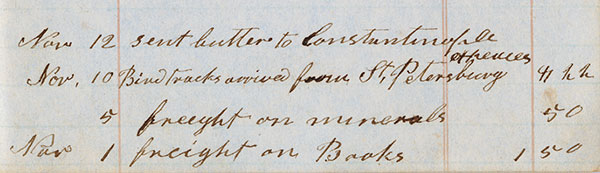 Nov 12 sent butter to Constantinople
expences
Nov. 10 Bird tracks arrived from St. Petersburg 41 44
5 freeght on minerals 50
Nov 1 freight on Books 1 50